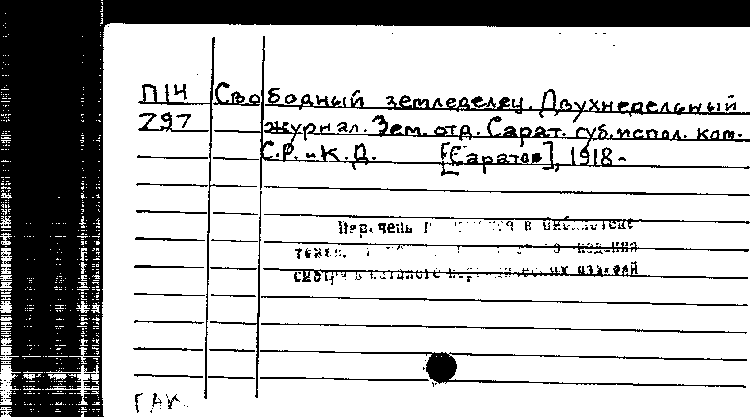 П14 Свободный земледелец. Двухнедельный
Z97 журнал. Зем. отд. Сарат. губ. испол. ком.
С.Р. и К.Д. [Саратов], 1918-
Перечень в библиотеке
смотри в каталоге периодических изданий
ГАК